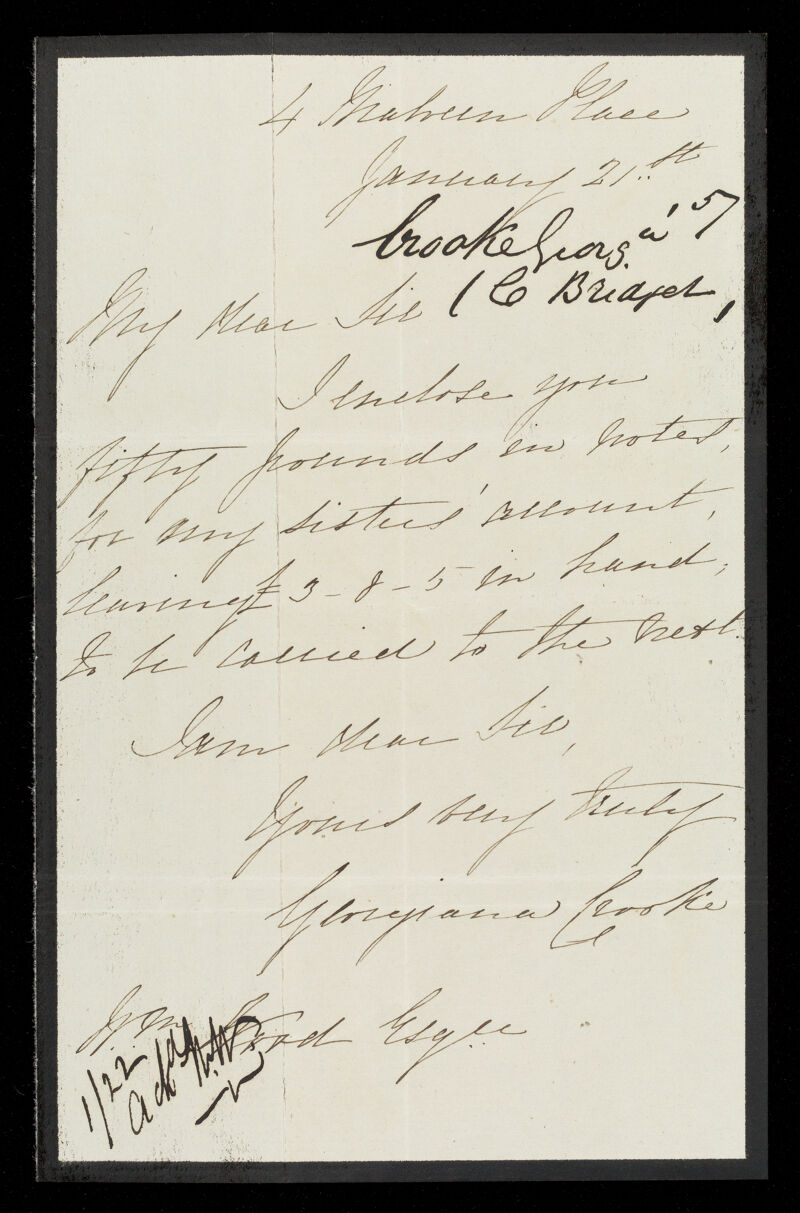 4 Malvern Place
January 21.st
Crooke Georg.a '57
(C Bridget,
My dear Sir
I enclose you
fifty pounds in notes,
for my sisters' account,
leaving £3-8-5 in hand,
to be carried to the next.
I am dear Sir,
Yours very truly
Georgiana Crooke
Wm. Esqre
1/22
ackd